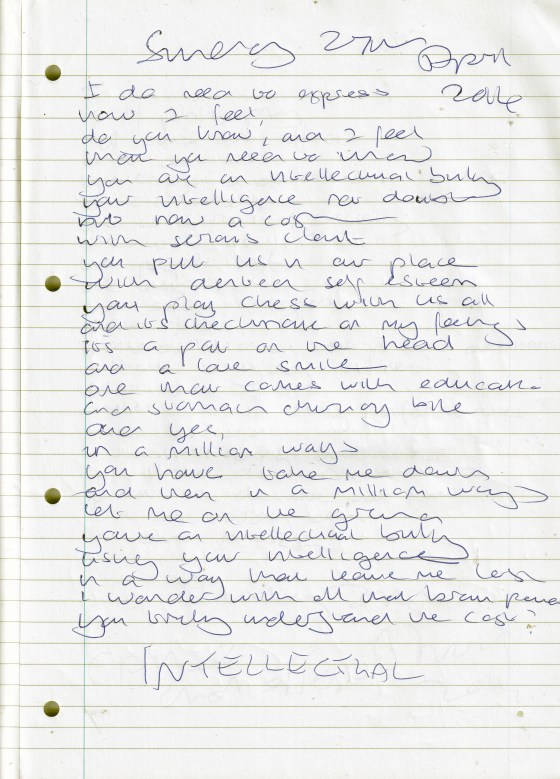 Sunday 27th April
2014
I do need to express
how I feel,
do you know, and I feel
that you need to know
you are an intellectual bully
your intelligence no doubt
but now a cost
with serious clout
you put us in our place
with dented self esteem
you play chess with us all
and its checkmate on my feelings
its a pat on the head
and a love smile
one that comes with education
and stomach churning bile
and yes,
in a million ways
you have take me down
and then in a million ways
let me on the ground
youre an intellectual bully
using your intelligence
in a way that leave me less
I wonder with all that brain power
you truly understand the cost?
INTELLECTUAL